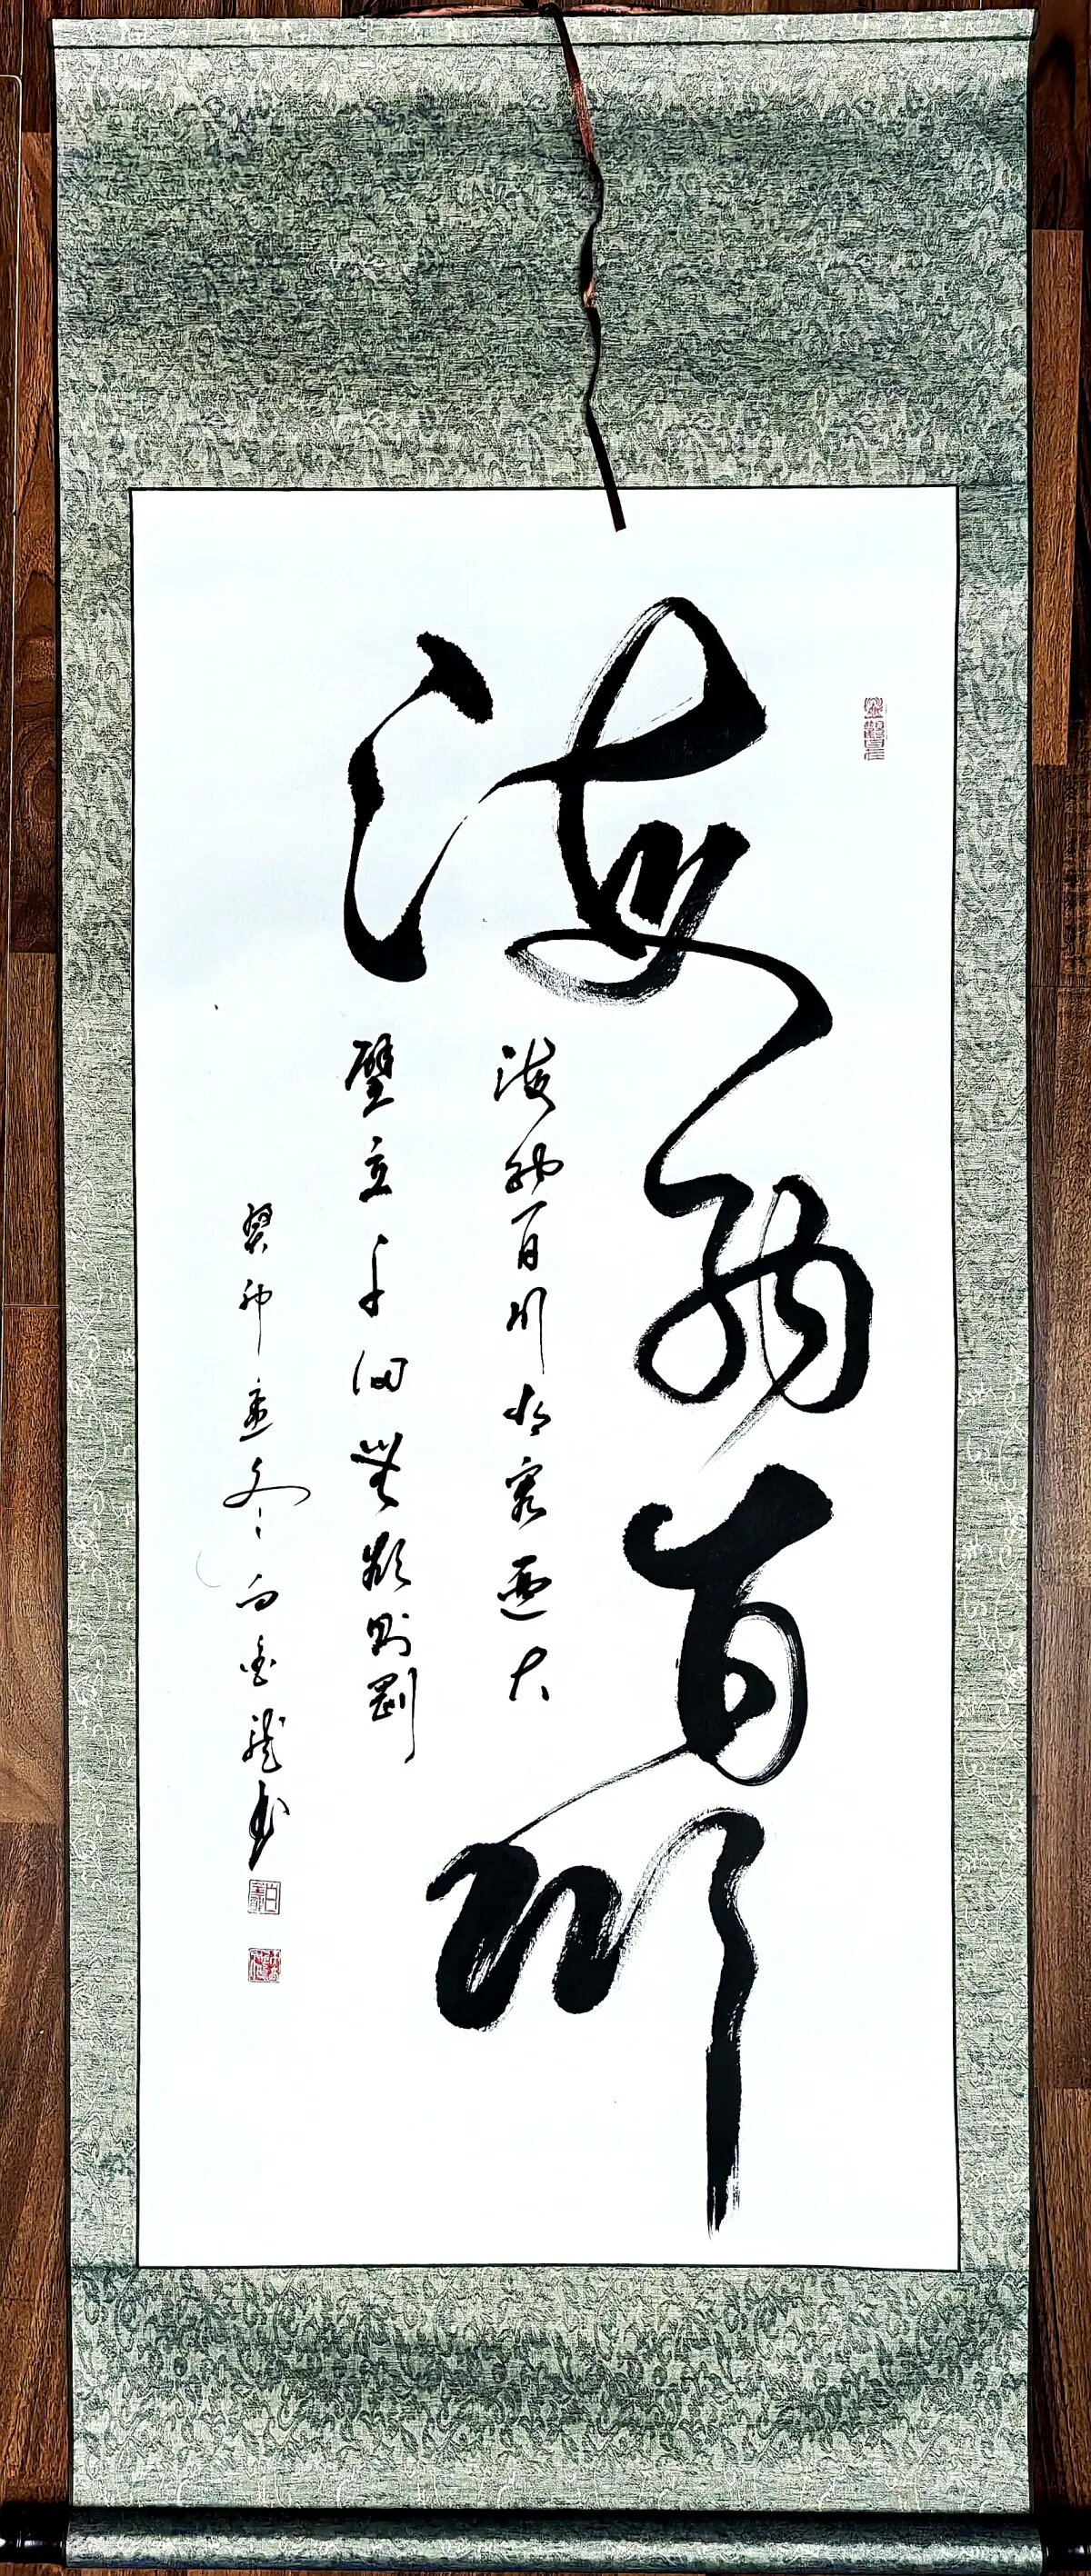 海納百川
海納百川有容迺大
壁立千仞無欲則剛
癸卯孟冬白龍書